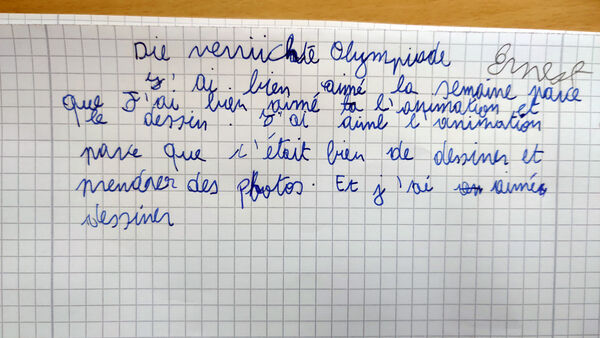 Die verriichte Olympiade
Ernest
J'ai bien aimé la semaine parce
que J'ai bien aimé l'animation et
le dessin. J'ai aimé l'animation
parce que c'était bien de dessiner et
prendrer des photos. Et j'ai aimé
dessiner